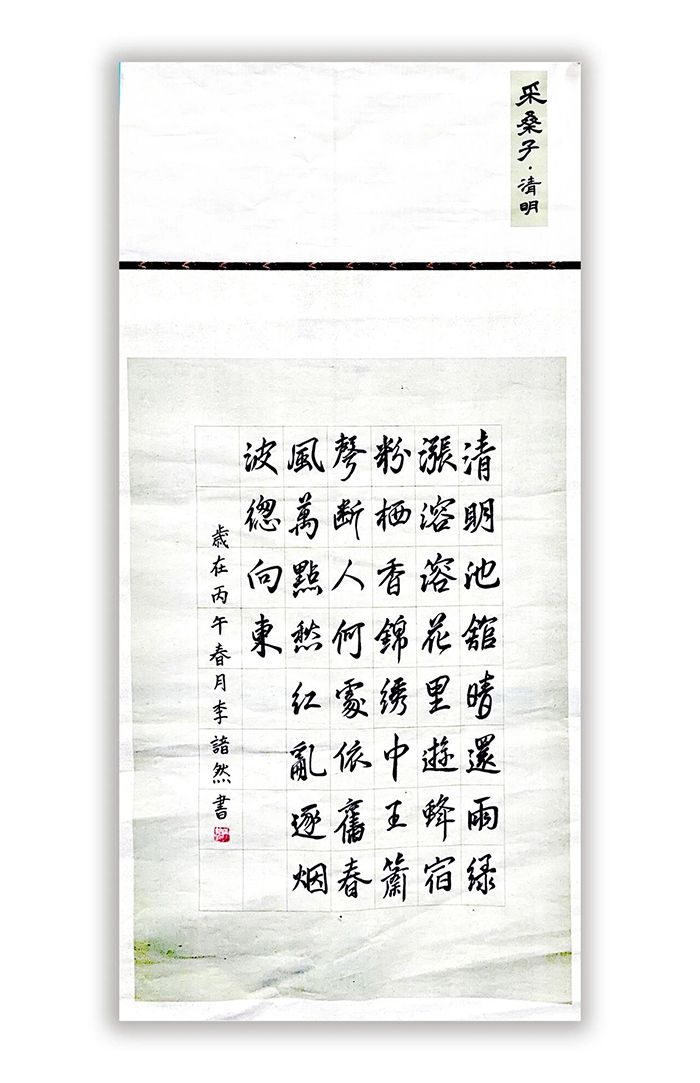 采桑子·清明
清明池舘晴還雨绿
漲溶溶花里遊蜂宿
粉栖香錦绣中王簫
聲断人何處依舊春
風萬點愁红亂逐烟
波緫向東
歲在丙午春月李諳然書